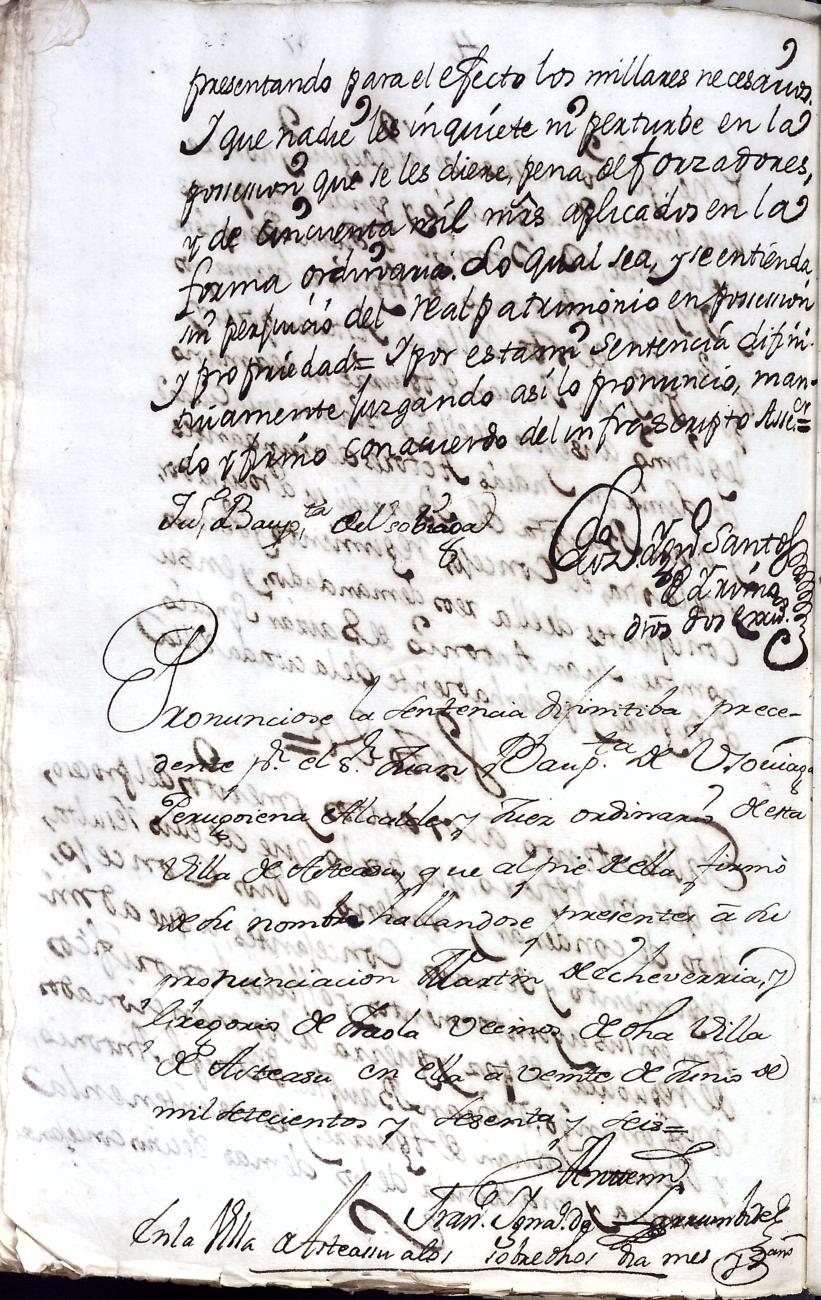 presentando para el efecto los millares necesarios.
Y que nadie les inquiete ni perturbe en la
possession que se les diere, pena de forzadores,
y de cinquenta mil mrs aplicados en la
forma ordinaria. Lo qual sea, y se entienda
sin perjuicio del real patrimonio en possession
y propriedad= Y por esta mi sentencia difini-
tivamente juzgando asi lo pronuncio, man-
do y firmo con acuerdo del infrascripto Assecr=
Jun Baupta de Usobiaga
Lizdo dn Santos
dros dos
Pronunciose la sentencia difinitiba prece-
dente pr. el sr. Juan Baupta de Usouiaga
Perugoiena Alcalde y Juez ordinario de esta
Villa de Asteasu, que al pie della firmò
de su nombre hallandose presentes â su
pronunciacion Martin de Echeverria, y
Gregorio de Iraola vecinos de dha Villa
de Asteasu en ella â veinte de Junio de
mil setecientos y sesenta y seis=
Ante mi
Fran. Ignº. de Larrumbide
En la Villa de Asteasu a los sobredhos dia mes y año